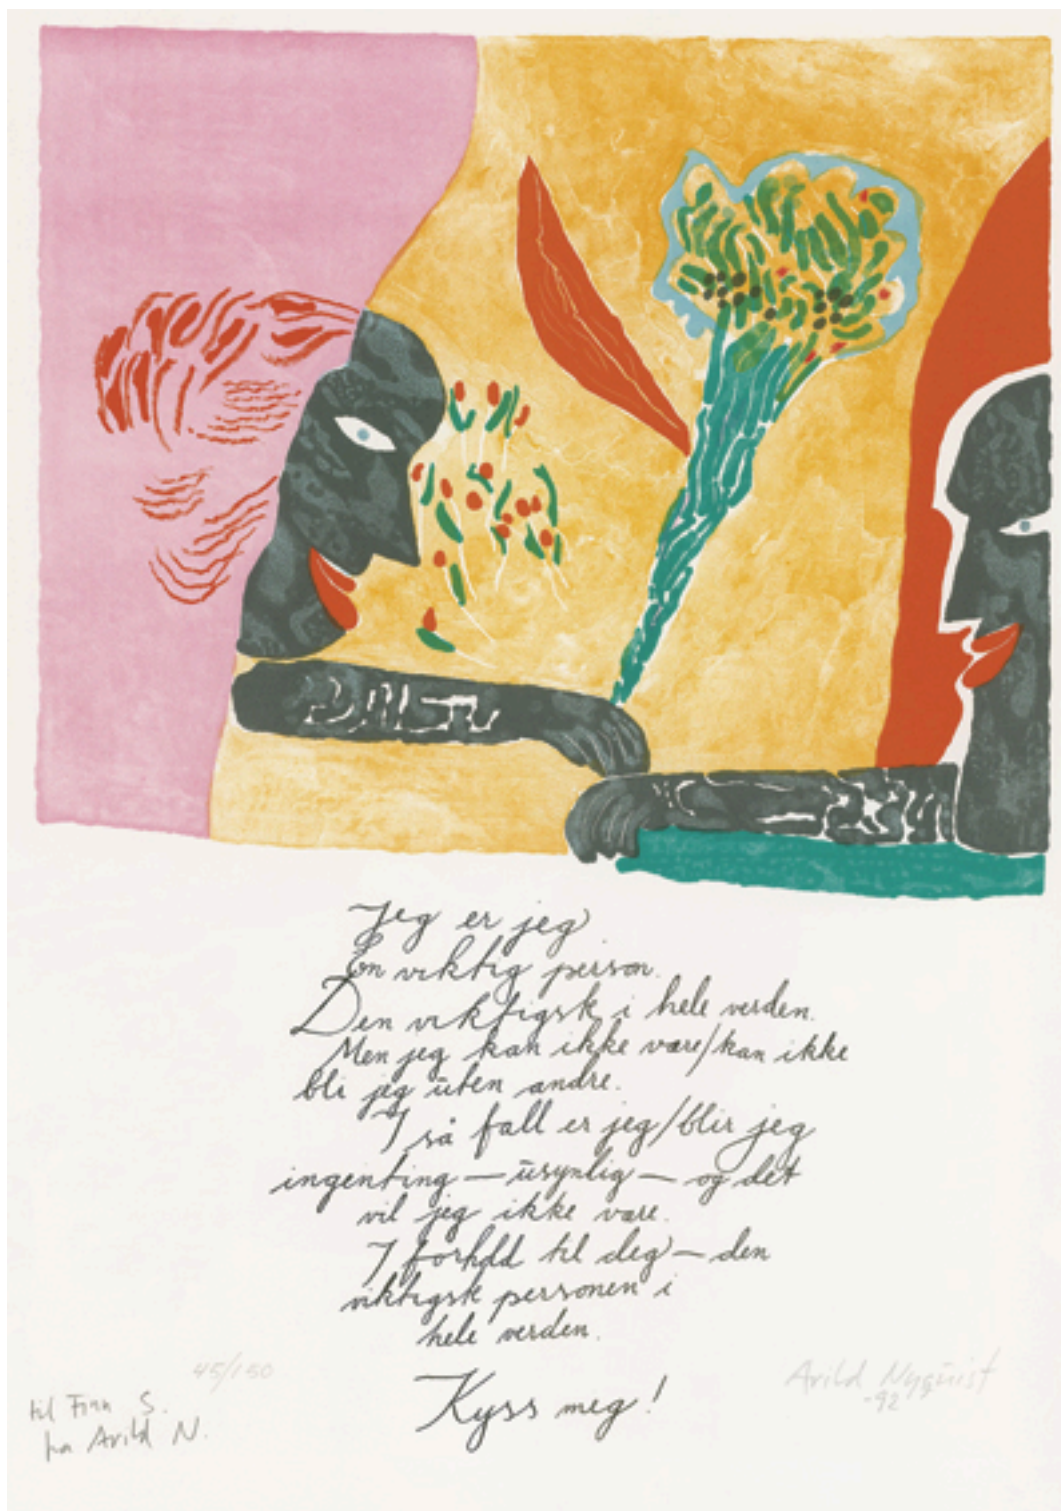 Jeg er jeg
En viktig person.
Den viktigste i hele verden.
Men jeg kan ikke være/kan ikke
bli jeg uten andre.
I så fall er jeg/blir jeg
ingenting — usynlig — og det
vil jeg ikke være.
I forhold til deg — den
viktigste personen i
hele verden.
Kyss meg!
45/150
Arild Nyquist
-92
til Finn S.
fra Arild N.